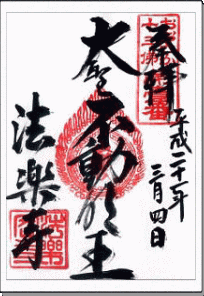 奉拝
平成二十一年
三月四日
大聖不動明王
法楽寺